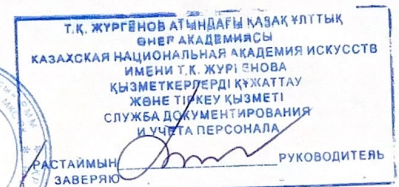 Т.Қ. ЖҮРГЕНОВ АТЫНДАҒЫ ҚАЗАҚ ҰЛТТЫҚ
ӨНЕР АКАДЕМИЯСЫ
КАЗАХСКАЯ НАЦИОНАЛЬНАЯ АКАДЕМИЯ ИСКУССТВ
ИМЕНИ Т.К. ЖУРГЕНОВА
ҚЫЗМЕТКЕРЛЕРДІ ҚҰЖАТТАУ
ЖӘНЕ ТІРКЕУ ҚЫЗМЕТІ
СЛУЖБА ДОКУМЕНТИРОВАНИЯ
И УЧЕТА ПЕРСОНАЛА
РАСТАЙМЫН РУКОВОДИТЕЛЬ
ЗАВЕРЯЮ